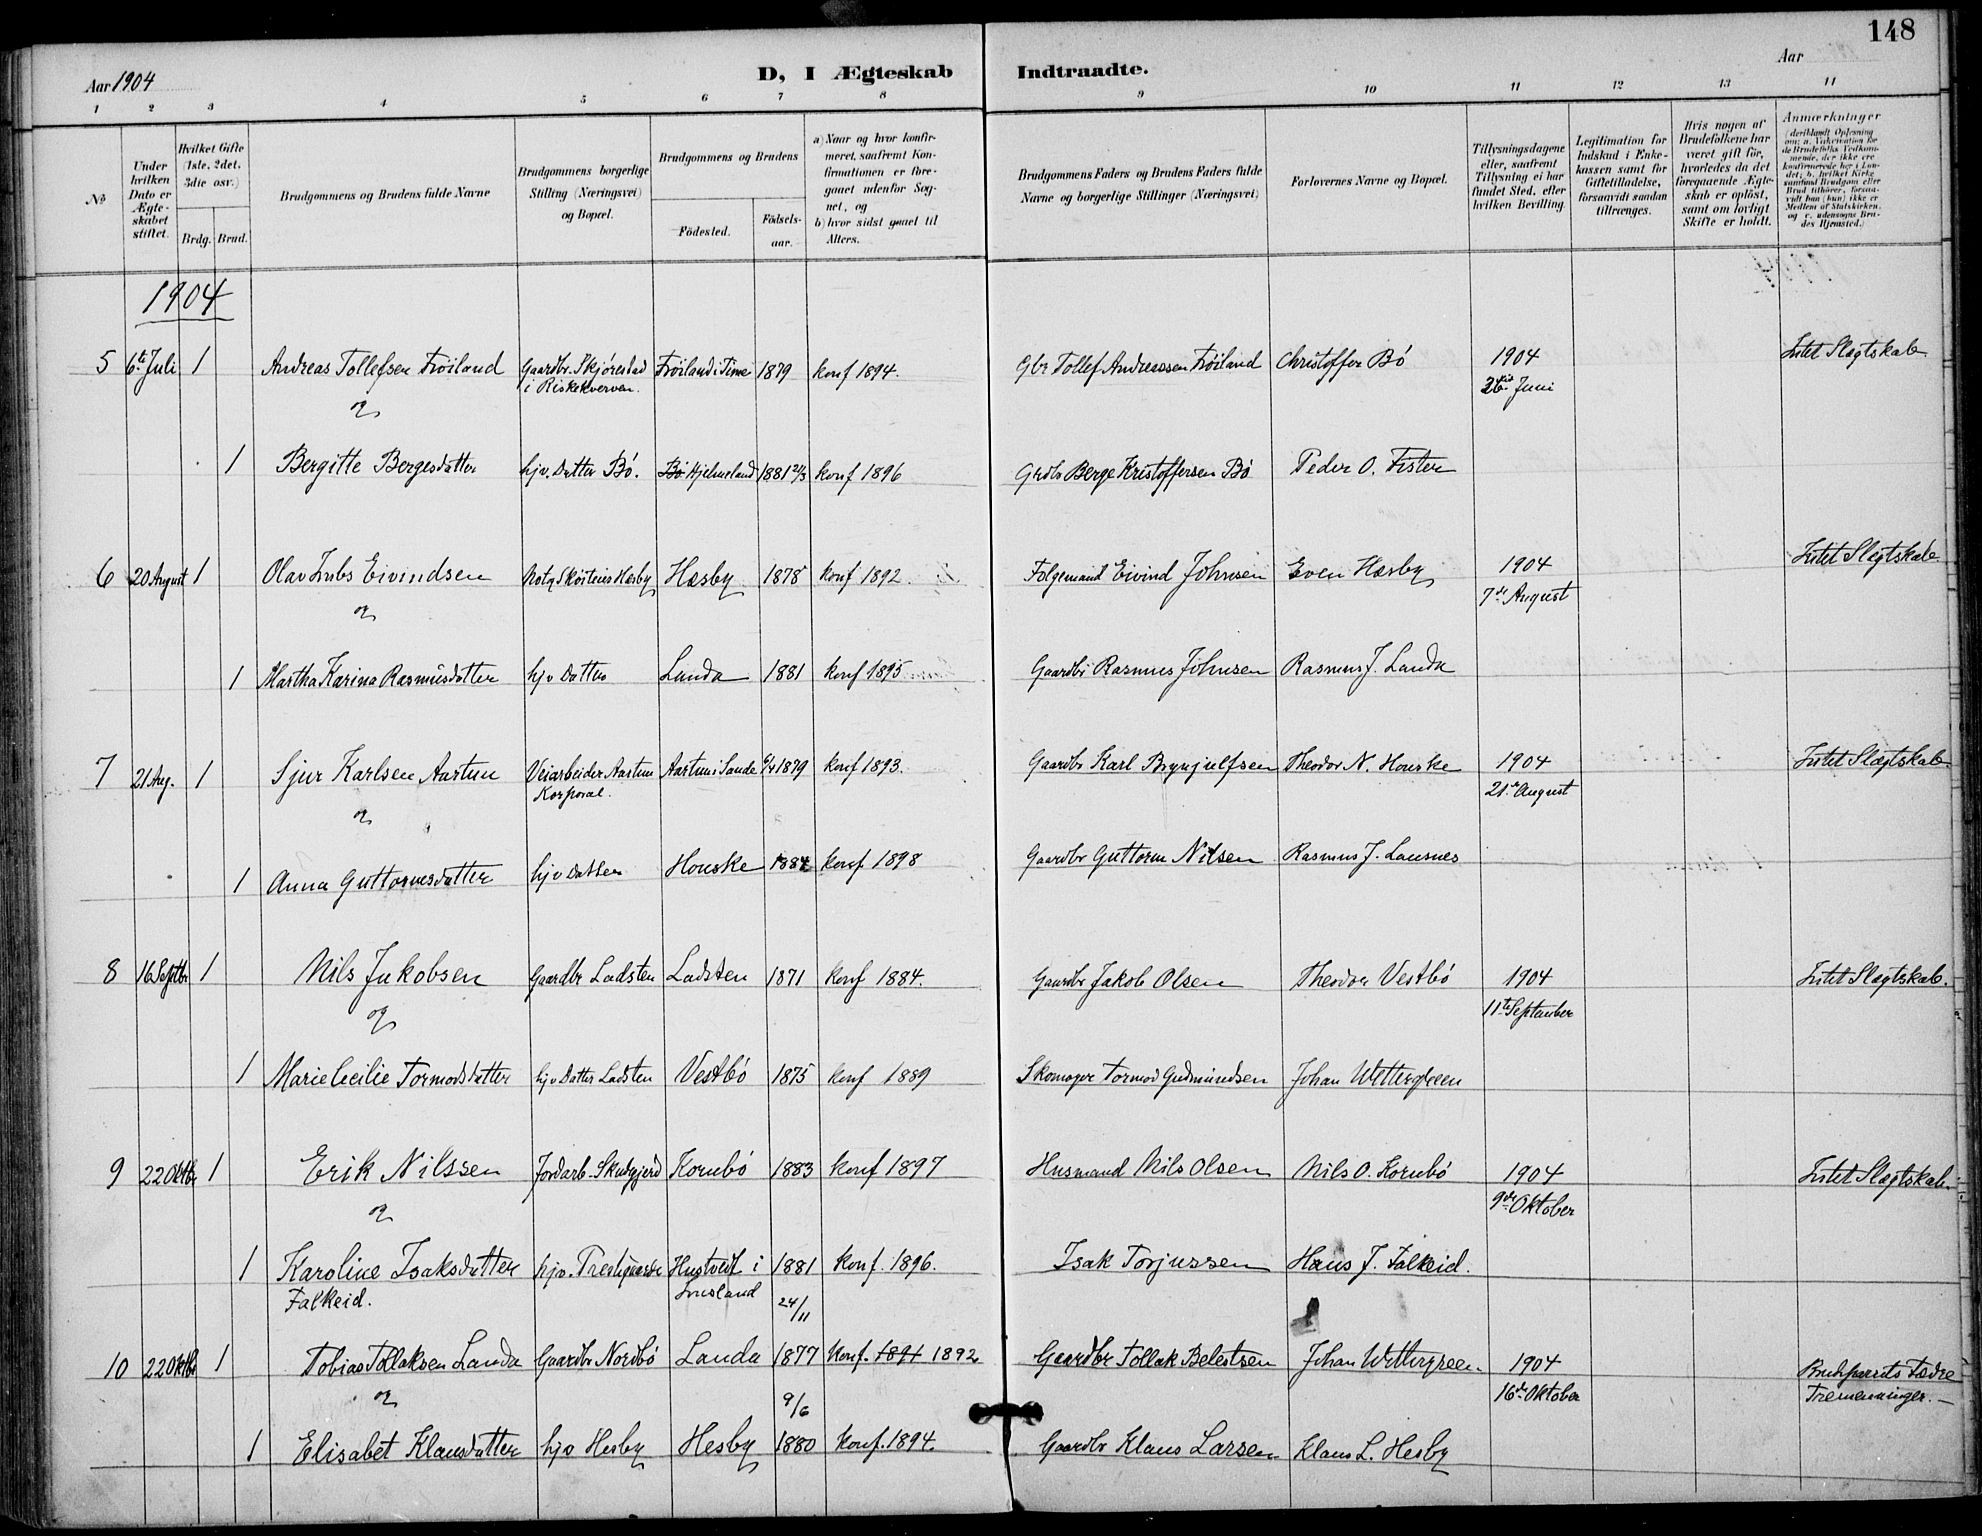 148
Aar 1904
D, I Ægteskab Indtraadte.
Aar
1 2 3 4 5 6 7 8 9 10 11 12 13 14
№
Under hvilken Dato er Ægteskabet stiftet.
Hvilket Gifte (1ste, 2det, 3die osv.)
Brdg. Brud.
Brudgommens og Brudens fulde Navne
Brudgommens borgerlige Stilling (Næringsvei) og Bopæl.
Brudgommens og Brudens
Fødested.
Fødselsaar.
a) Naar og hvor konfirmeret, saafremt Konfirmationen er foregaaet udenfor Sognet, og
b) hvor sidst gaaet til Alters.
Brudgommens Faders og Brudens Faders fulde Navne og borgerlige Stillinger (Næringsvei)
Forlovernes Navne og Bopæl.
Tillysningsdagene eller, saafremt Tillysning ei har fundet Sted, efter hvilken Bevilling.
Legitimation for Indskud i Enkekassen samt for Giftetilladelse, forsaavidt saadan tiltrænges.
Hvis nogen af Brudefolkene har været gift før, hvorledes da det foregaaende Ægteskab er opløst, samt om lovligt Skifte er holdt.
Anmærkninger
1904
5 6te Juli 1 Andreas Tollefsen Frøiland Gaardbr. Skjørestad Frøiland i Time 1879 konf 1894. Gbr Tollef Andreassen Frøiland Christoffer Bø 1904 Intet Slægtskab
i Riskekverven. 26 Juni
og
1 Bergitte Bergesdatter hjv. Datter Bø. Bø Hjelmeland 1881 konf 1896 Grdb Berge Kristoffersen Bø Peder O. Fister
6 20 August 1 Olav Eivindsen Hesby 1878 konf 1892 Eivind Johnsen Even Hesby 1904 Intet Slægtskab.
7de August
og
1 Martha Karina Rasmusdatter hjv Datter Landa 1881 konf 1895 Gaardbr Rasmus Johnsen Rasmus J. Landa
7 21 Aug. 1 Sjur Karlsen Aartun Veiarbeider Aartun Aartun i Sande 1879 konf 1893. Gaardbr Karl Brynjulfsen Theodor N. Houske 1904 Intet Slægtskab.
Korporal. 21de August
og
1 Anna Guttormsdatter hjv Datter Houske 1884 konf 1898 Gaardbr Guttorm Nilsen Rasmus J. Lausnes
8 16 Septbr 1 Nils Jakobsen Gaardbr Ladsten Ladsten 1871 konf 1884. Gaardbr Jakob Olsen Theodor Vestbø 1904 Intet Slægtskab.
11te September
og
1 Marie Cecilie Tormodsdatter hjv Datter Ladsten Vestbø 1875 konf 1889 Skomager Tormod Gudmundsen Johan Wettergreen
9 22 Oktbr 1 Erik Nilssen Jordarb. Kornbø 1883 konf 1897 Husmand Nils Olsen Nils O. Kornbø 1904 Intet Slægtskab.
9de Oktober
og
1 Karoline Isaksdatter hjv. Hustvedt i 1881 konf. 1896. Isak Torjussen Hans J. Falkeid.
Falkeid. 24/11
10 22 Oktbr 1 Tobias Tollaksen Landa Gaardbr Nordbø Landa 1877 konf. 1891 1892 Gaardbr Tollak Belestsen Johan Wettergreen 1904 Brudeparrets Fædre
og 9/6 16de Oktober Tremenninger.
1 Elisabet Klausdatter hjv Hesby Hesby 1880 konf. 1894. Gaardbr Klaus Larsen Klaus L. Hesby